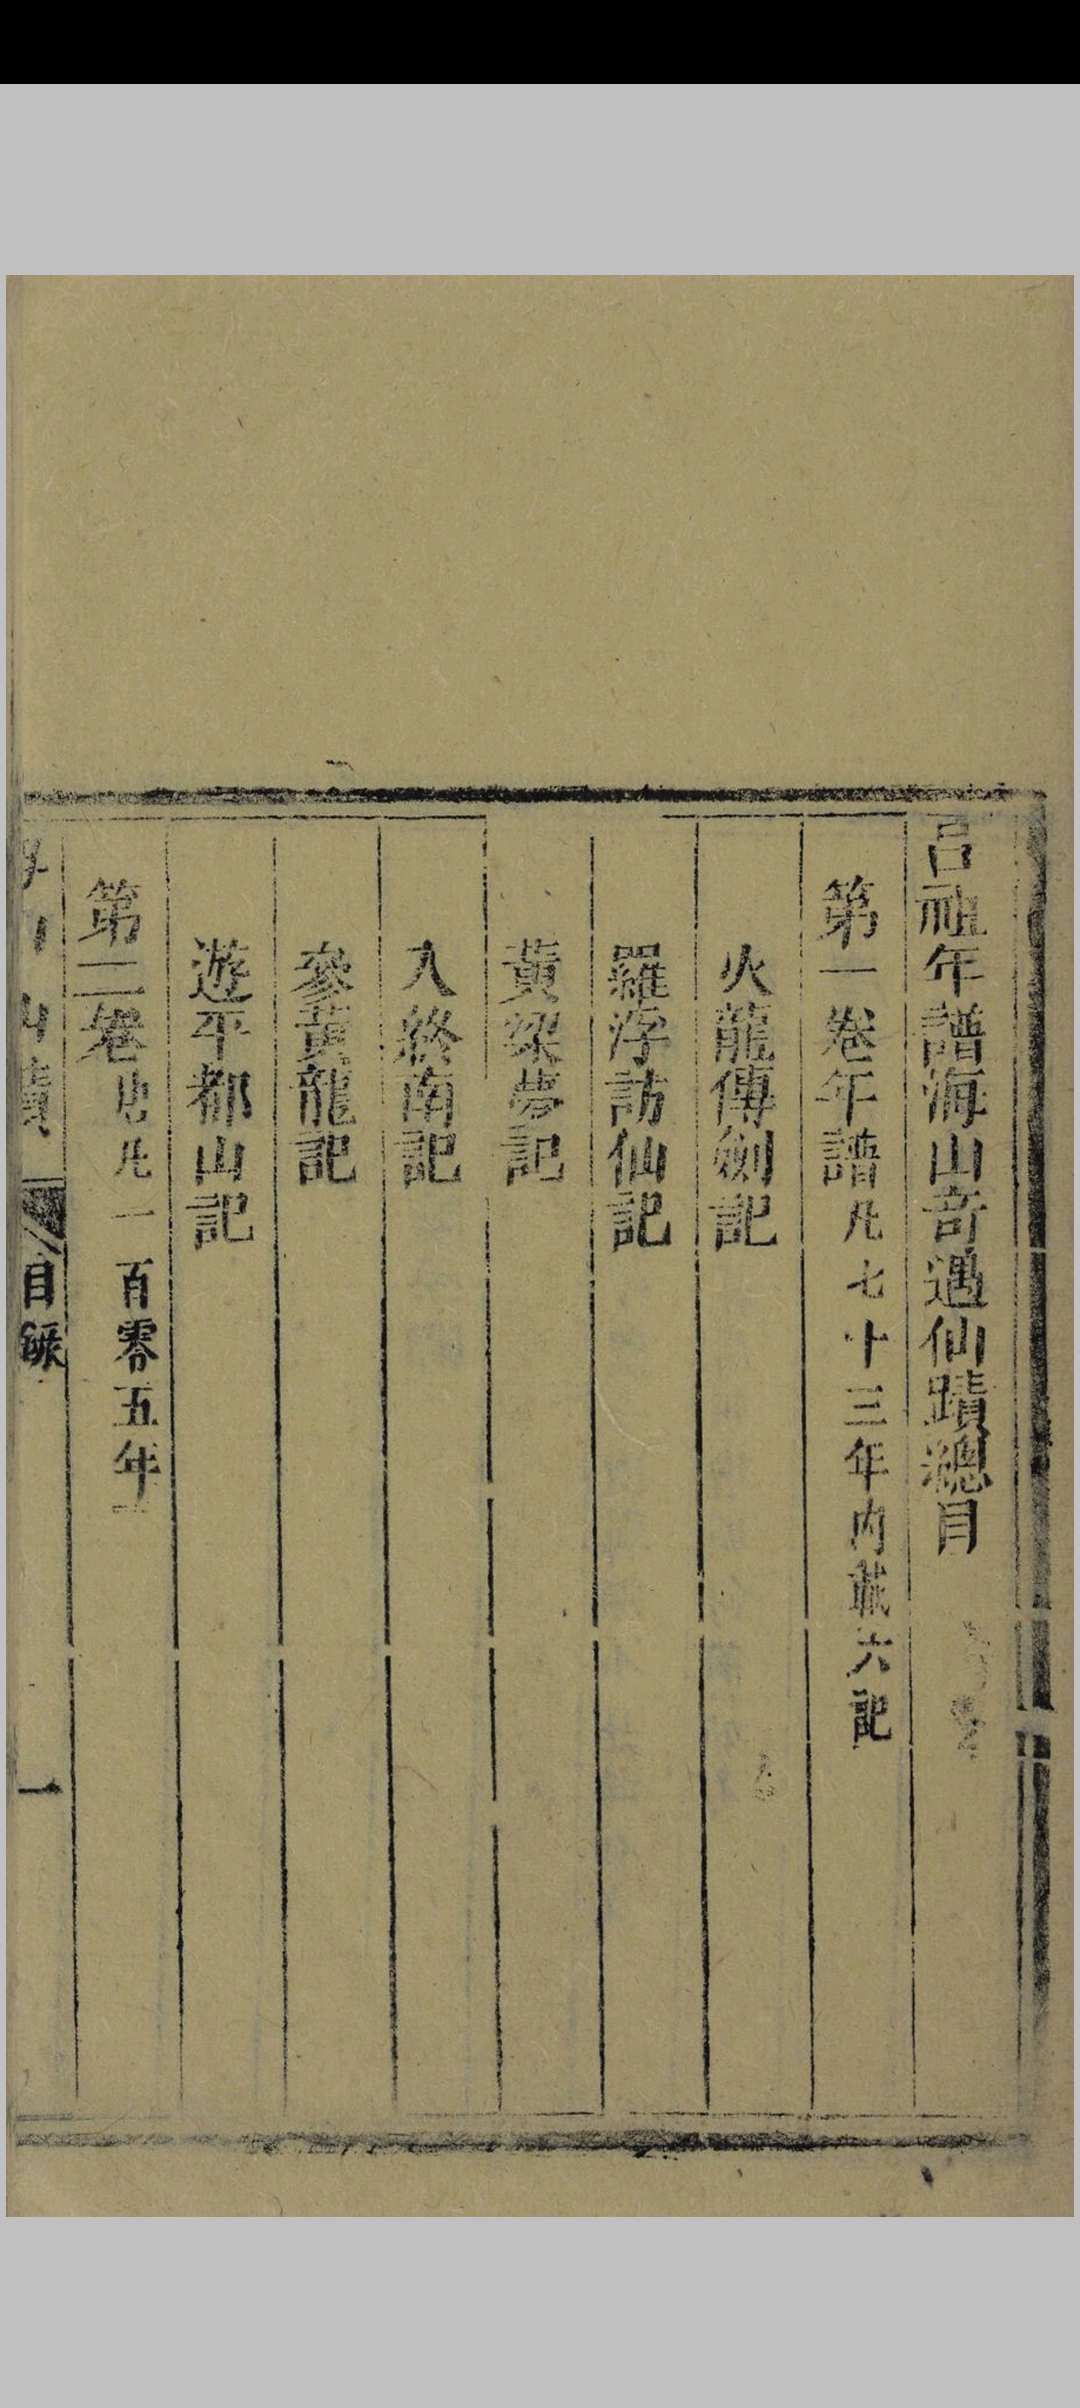 呂祖年譜海山奇遇仙蹟總目
第一卷年譜凡七十三年內藏六記
火龍傳劍記
羅浮訪仙記
黃粱夢記
入終南記
參黃龍記
遊平都山記
第二卷 凡一百零五年
目錄
一